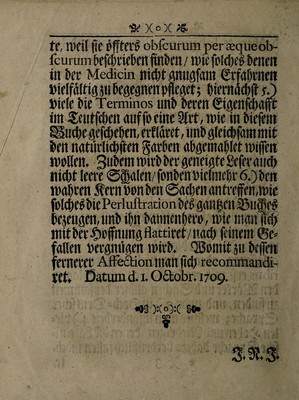 )(o)(
te, weil sie öffters obscurum per æque ob-
scurum beschrieben finden / wie solches denen
in der Medicin nicht gnugsam Erfahrnen
vielfältig zu begegnen pfleget; hiernächst 5.)
viele die Terminos und deren Eigenschafft
im Teutschen auf so eine Art, wie in diesem
Buche geschehen, erkläret, und gleichsam mit
den natürlichsten Farben abgemahlet wissen
wollen. Zudem wird der geneigte Leser auch
nicht leere Schalen / sondern vielmehr 6.) den
wahren Kern von den Sachen antreffen, wie
solches die Perlustration des gantzen Buches
bezeugen, und ihn dannenhero, wie man sich
mit der Hoffnung flattiret / nach seinem Ge-
fallen vergnügen wird. Womit zu dessen
fernerer Affection man sich recommandi-
ret. Datum d. 1. Octobr. 1709.
):o:(
J. R. J.